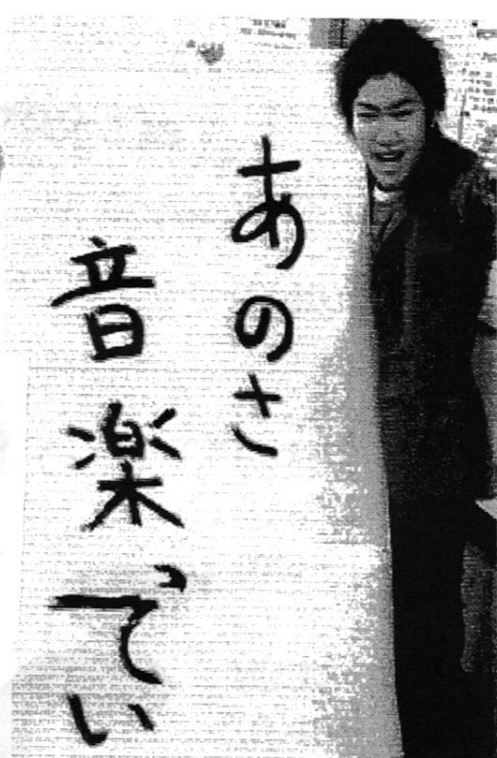 あのさ
音楽ってい